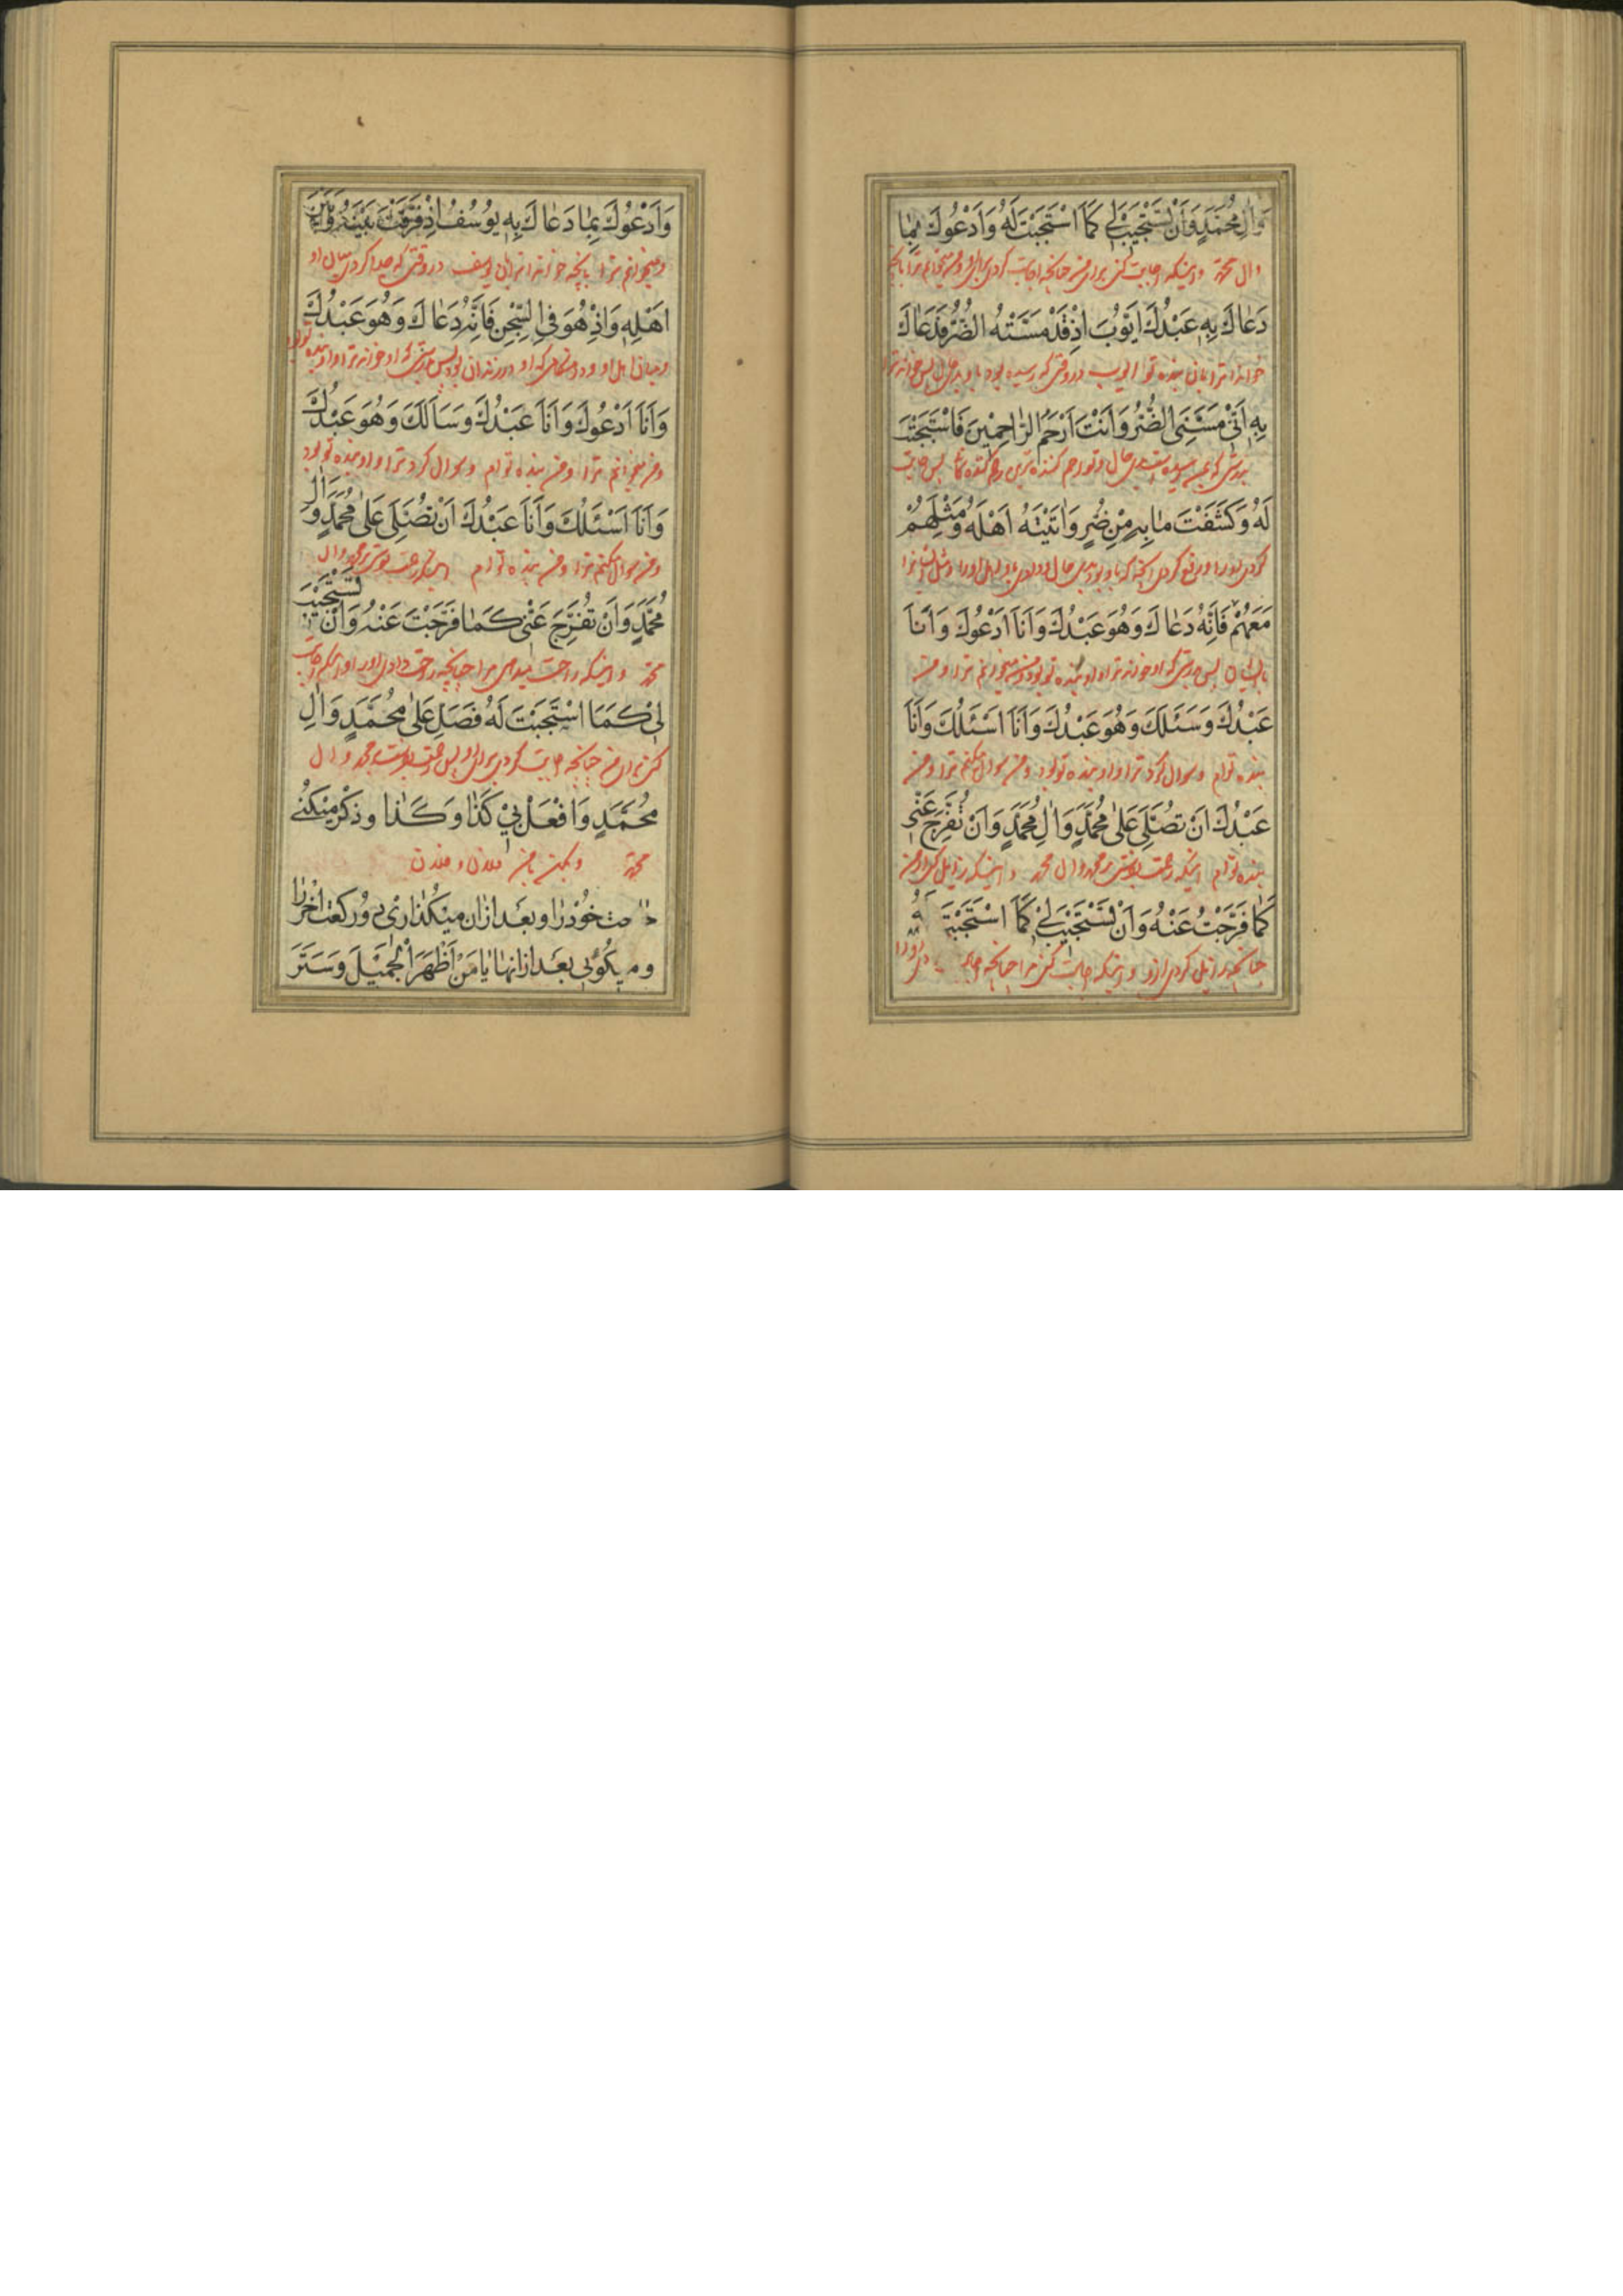 وَالِ مُحَمَّدٍ وَاَنْ تَسْتَجيبَ لي كَمَا اسْتَجَبْتَ لَهُ وَاَدْعُوكَ بِمٰا
وال محمد و اینکه اجابت کنی برای من چنانچه اجابت کردی برای او و من میخوانم ترا بانچه
دَعٰاكَ بِهِ عَبْدُكَ اَيّوُبُ اِذْ قَدْ مَسَّتْهُ الضُّرُّ فَدَعٰاكَ
خوانده ترا بان بنده تو ایوب در وقتی که رسیده بود باو بدحالی پس خوانده ترا
بِهِ اَنّي مَسَّنِيَ الضُّرُّ وَاَنْتَ اَرْحَمُ الرّٰاحِمينَ فَاسْتَجَبْتَ
بدرستی که بمن رسیده است بدحالی و تو رحم کننده ترین رحم کننده پس اجابت
لَهُ وَكَشَفْتَ مٰا بِهِ مِنْ ضُرٍّ وَاٰتَيْتَهُ اَهْلَهُ وَمِثْلَهُمْ
کردی او را و رفع کردی آنچه که باو بود بدی حال و دادی باو اهل او را و مثل ایشانرا
مَعَهُمْ فَاِنَّهُ دَعٰاكَ وَهُوَ عَبْدُكَ وَاَنَا اَدْعُوكَ وَاَنَا
با ایشان پس بدرستی که او خوانده ترا و او بنده تو بود و من میخوانم ترا و من
عَبْدُكَ وَسَئَلَكَ وَهُوَ عَبْدُكَ وَاَنَا اَسْئَلُكَ وَاَنَا
بنده توام و سوال کرد ترا و او بنده تو بود و من سوال میکنم ترا و من
عَبْدُكَ اَنْ تُصَلِّيَ عَلىٰ مُحَمَّدٍ وَاٰلِ مُحَمَّدٍ وَاَنْ تُفَرِّجَ عَنّي
بنده توام اینکه رحمت بفرستی بر محمد وال محمد و اینکه زایل کنی از من
كَمٰا فَرَّجْتَ عَنْهُ وَاَنْ تَسْتَجيبَ لي كَمَا اسْتَجَبْتَ لَهُ
چنانچه زایل کردی ازو و اینکه اجابت کنی مرا چنانچه
وَاَدْعُوكَ بِمٰا دَعٰاكَ بِهِ يوُسُفُ اِذْ فَرَّقْتَ بَيْنَهُ وَبَيْنَ
و میخوانم ترا بانچه خوانده ترا بان یوسف در وقتی که جدا کردی میان او
اَهْلِهِ وَاِذْ هُوَ فِي السِّجْنِ فَاِنَّهُ دَعٰاكَ وَهُوَ عَبْدُكَ
و میان اهل او و در هنگامی که او در زندان بود پس بدرستی که او خوانده ترا و او بنده تو بود
وَاَنَا اَدْعُوكَ وَاَنَا عَبْدُكَ وَسَاَلَكَ وَهُوَ عَبْدُكَ
و من میخوانم ترا و من بنده توام و سوال کرد ترا و او بنده تو بود
وَاَنَا اَسْئَلُكَ وَاَنَا عَبْدُكَ اَنْ تُصَلِّيَ عَلىٰ مُحَمَّدٍ وَاٰلِ
و من سوال میکنم ترا و من بنده توام اینکه رحمت بفرستی بر محمد وال
مُحَمَّدٍ وَاَنْ تُفَرِّجَ عَنّي كَمٰا فَرَّجْتَ عَنْهُ وَاَنْ تَسْتَجيبَ
محمد و اینکه راحت بدهی مرا چنانچه راحت دادی او را و اینکه اجابت
لي كَمَا اسْتَجَبْتَ لَهُ فَصَلِّ عَلىٰ مُحَمَّدٍ وَاٰلِ
کنی برای من چنانچه اجابت کردی برای او پس رحمت بفرست بر محمد و ال
مُحَمَّدٍ وَافْعَلْ بي كَذٰا وَكَذٰا وذكر ميكني
محمد و بکن بمن فلان و فلان
حاجت خود را و بعد از ان ميكذاري دو ركعت اخر را
و ميكوئي بعد از انها يٰا مَنْ اَظْهَرَ الْجَميلَ وَسَتَرَ